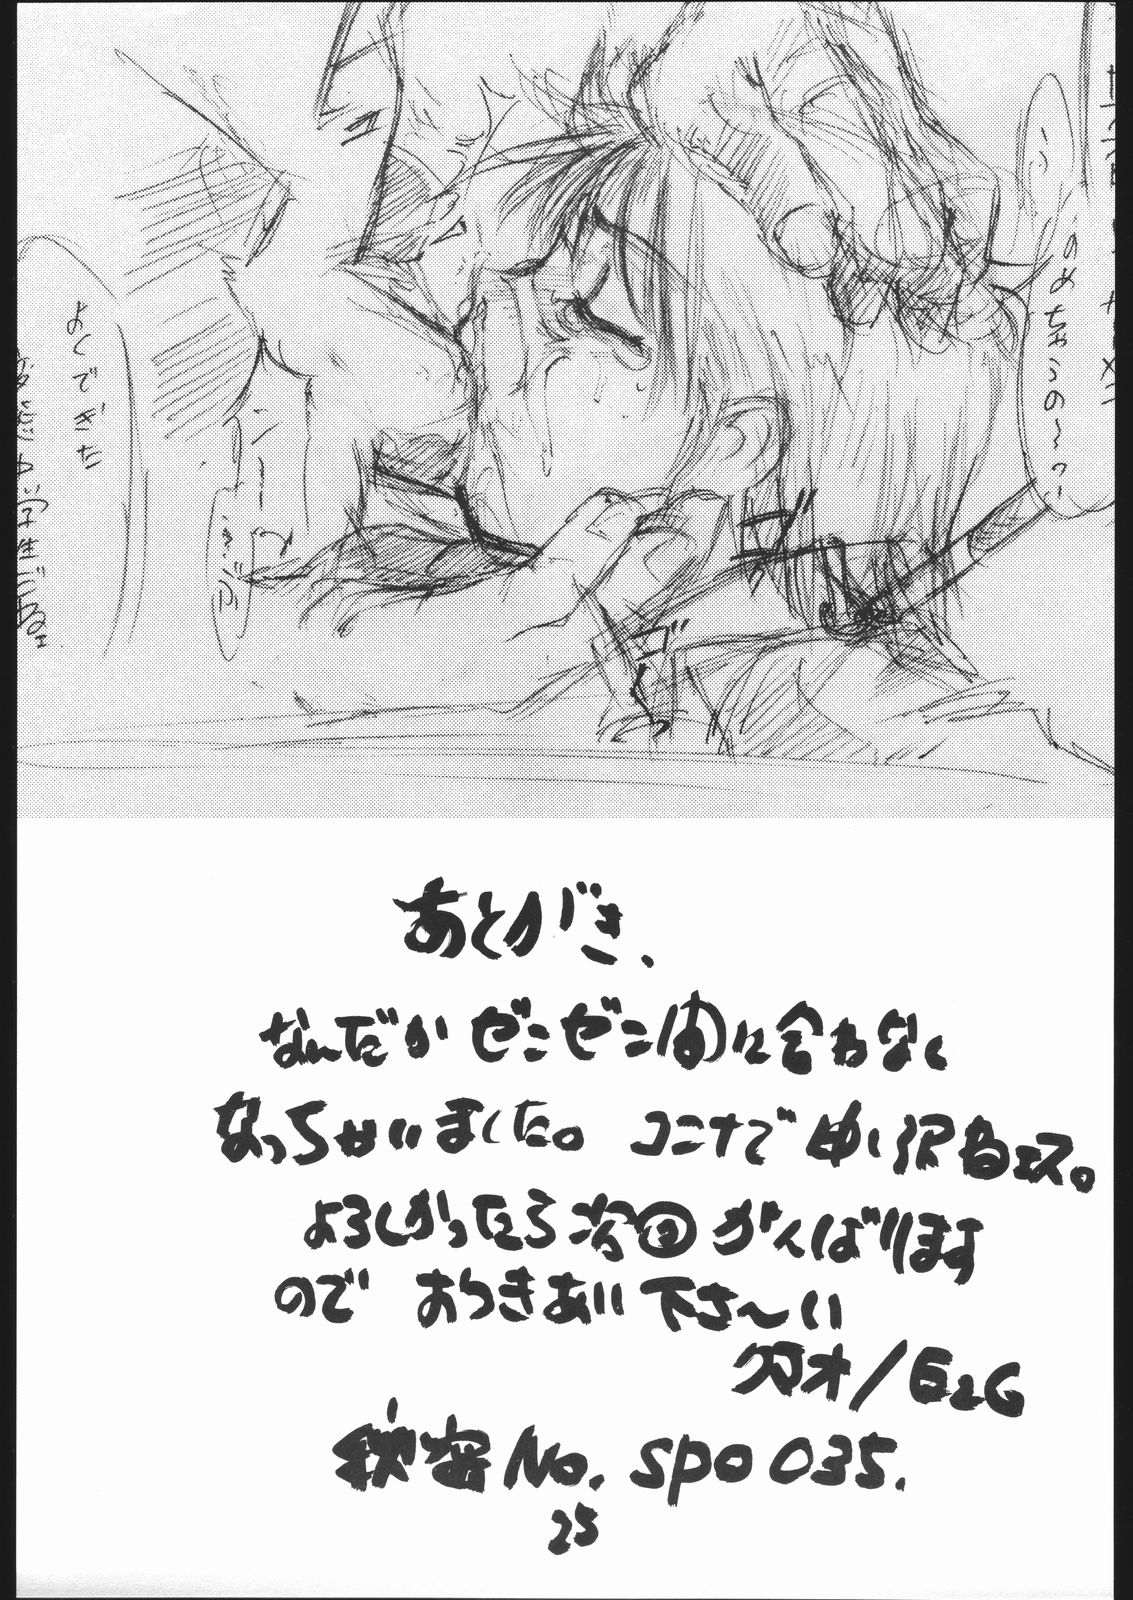 のめちゃいの〜っ
ゴ
ゴく
よくできた
あとがき、
なんだかゼンゼン間に合わなく
なっちゃいました。コンナで申し訳ねエス。
よろしかったら次回がんばります
のでおつきあい下さ〜い
クマオ/E2G
秘密No.spo035.
25